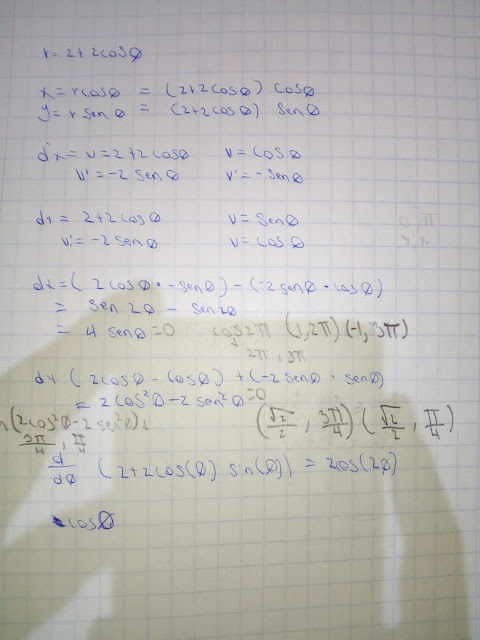 r = 2 + 2cosø
x = r cosø = (2+2cosø) cosø
y = r senø = (2+2cosø) senø
dx = u = 2+2cosø v = cosø
u' = -2 senø v' = -senø
dy = 2+2cosø v = senø
u' = -2 senø v = cosø
dx = (2cosø · -senø) - (-2senø · cosø)
= sen 2ø - sen 2ø
= 4 senø = 0 cos 2π (1, 2π) (-1, 3π)
2π, 3π
dy (2cosø - cosø) + (-2senø · senø)
= 2cos²ø - 2sen²ø = 0
n(2cos²ø - 2se²ø)
3π/4, π/4 (√2/2, 3π/4) (√2/2, π/4)
d/dø (2+2cos(ø) sin(ø)) = 2cos(2ø)
cosø